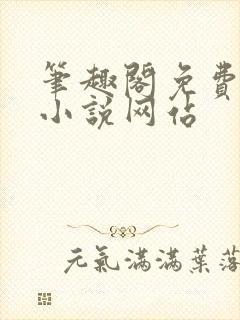 筆趣閣免費
小說网佔
元氣滿滿葉落